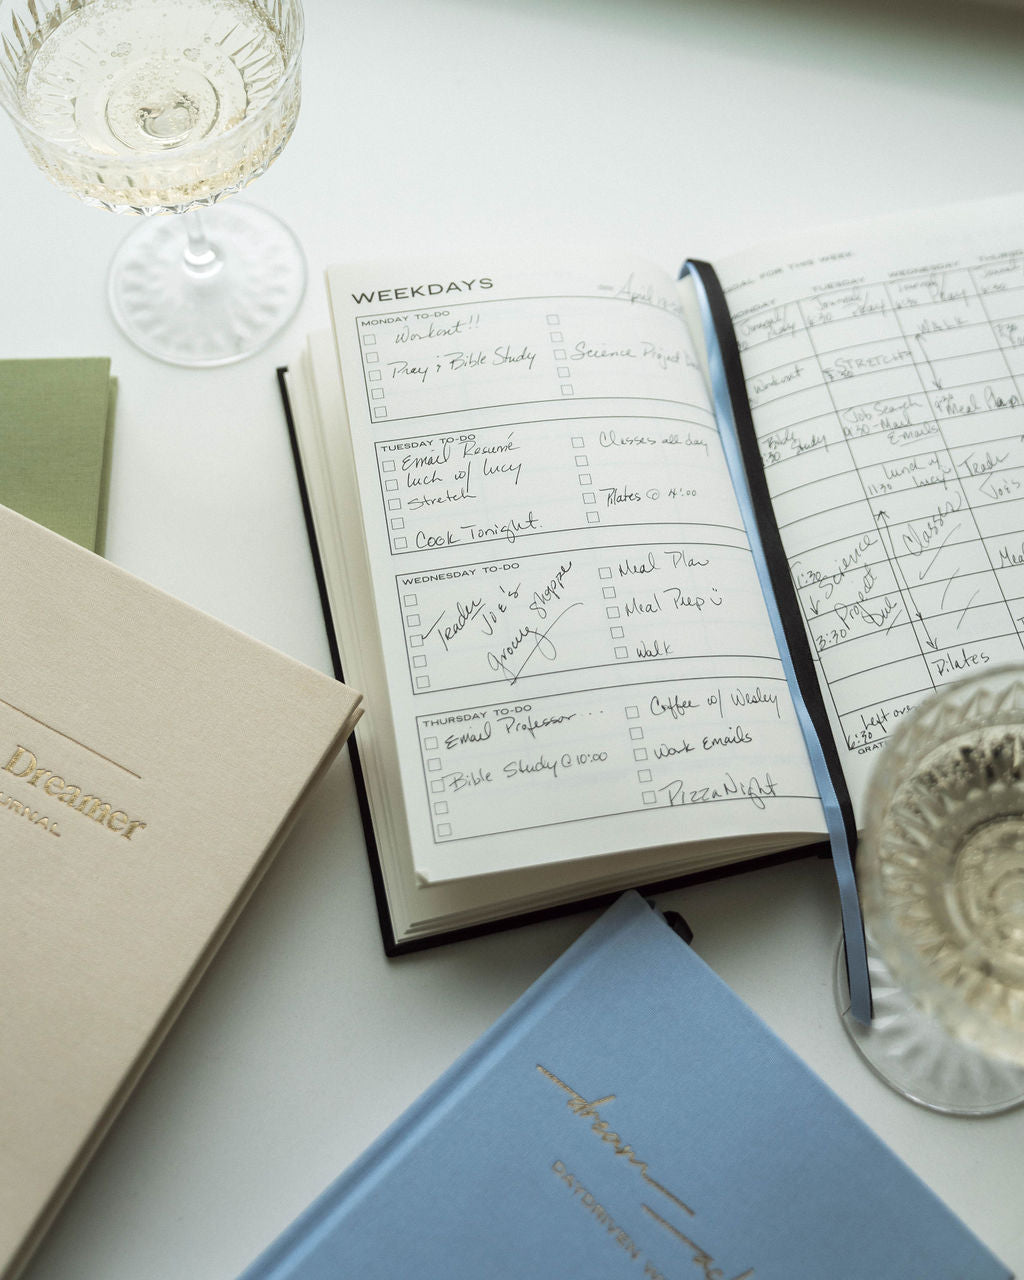 WEEKDAYS
April
MONDAY TO-DO
Workout!!
Pray & Bible Study
Science Project Due
TUESDAY TO-DO
Email Resumé
luch w/ lucy
Stretch
Cook Tonight.
Classes all day
Pilates @ 4:00
WEDNESDAY TO-DO
Trader
Joe's
Grocery Shoppe
Meal Plan
Meal Prep
Walk
THURSDAY TO-DO
Email Professor ...
Bible Study @ 10:00
Coffee w/ Wesley
Work Emails
Pizza Night
GOAL FOR THIS WEEK
MONDAY
TUESDAY
WEDNESDAY
THURSDAY
Journal/
Pray
Workout
Bible
Study
Science
Project
Due
3:30
Journal
Pray
6:30
STRETCH
Job Search
9:30-Mail
E-mails
Lunch w/
11:30 Lucy
Classes
Pilates
Journal
6:30
Pray
WALK
Meal Plan
Trader
Joe's
Left over
6:30
Dreamer
JOURNAL
dream
DAYDRIVEN